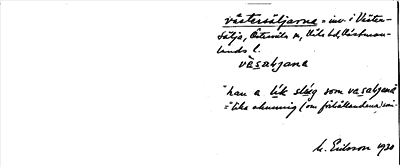 västersäljarna = inv. i Väster-
sälja, Österväla sn, Våla hd, Västman-
lands l.
väsaljana
"han a lik slåg som vasaljana
= lika okunnig (om förhållandena) som
M. Eriksson 1930